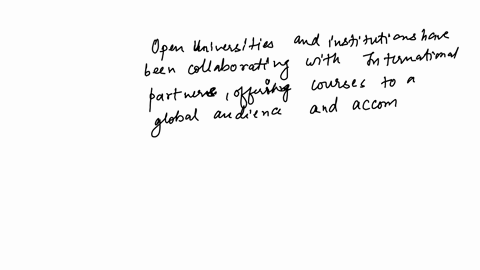 Open Universities and institutions have
been collaborating with International
partners, offering courses to a
global audience and accom